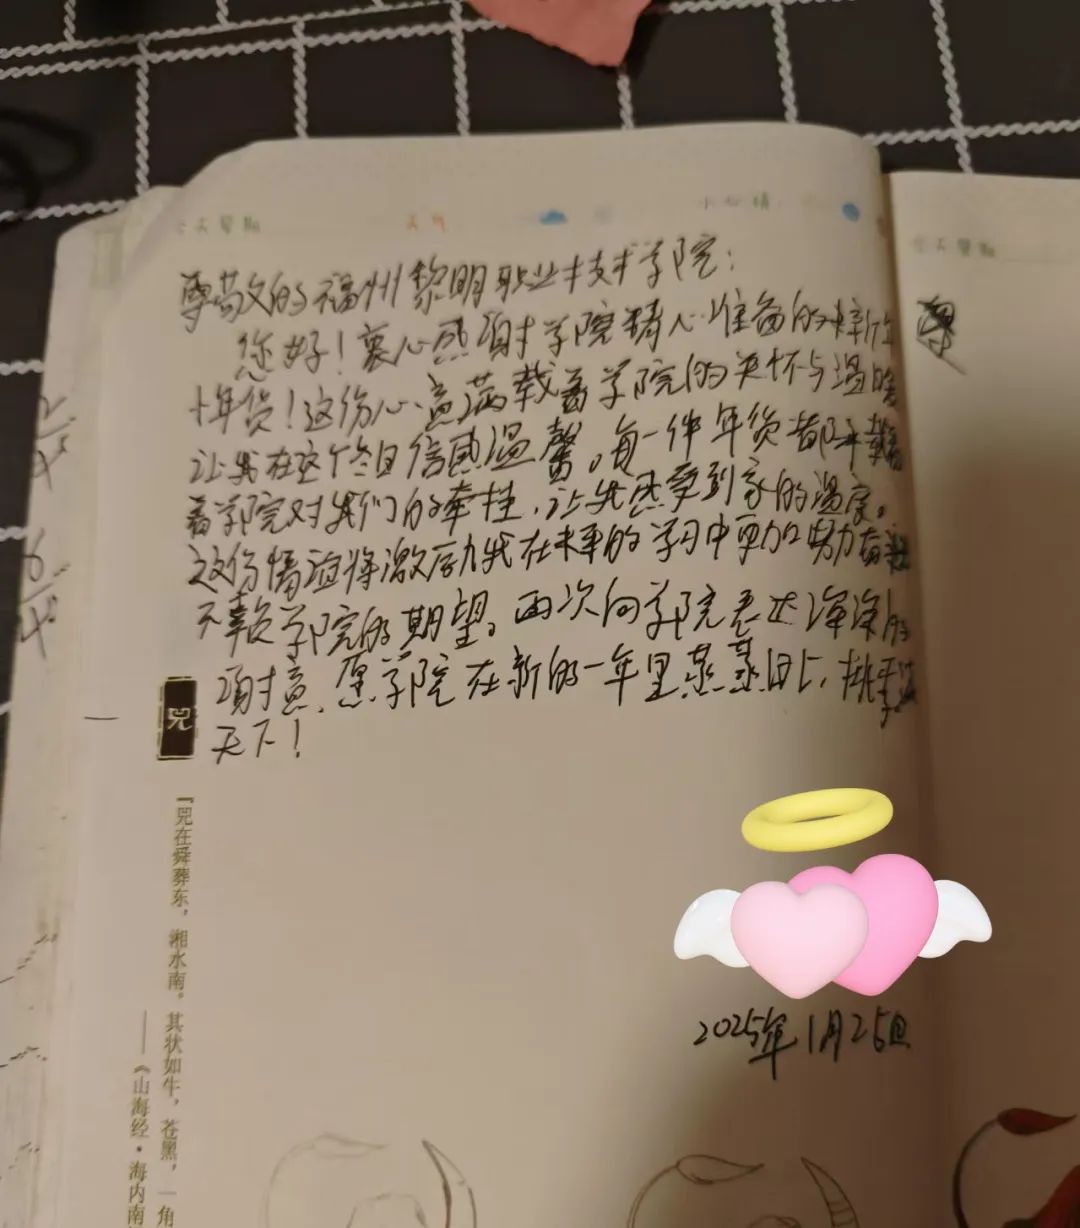 今天星期
天气
小心情
今天星期
尊敬的福州黎明职业技术学院：
您好！衷心感谢学院精心准备的
年货！这份心意满载着学院的关怀与温暖
让我在这个冬日倍感温馨。每一件年货都承载
着学院对我们的牵挂，让我感受到家的温度。
这份情谊将激励我在未来的学习中更加努力奋进
不辜负学院的期望。再次向学院表达深深的
谢意，愿学院在新的一年里蒸蒸日上，桃李满
天下！
2025年1月25日
兕
『兕在舜葬东，湘水南。其状如牛，苍黑，一角
——《山海经·海内南